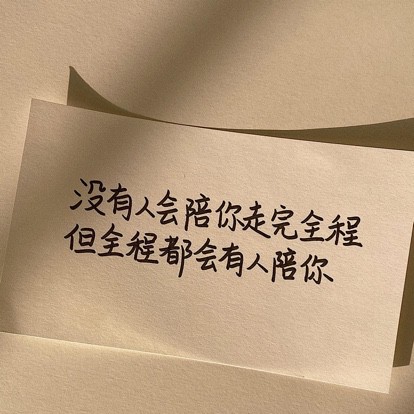 没有人会陪你走完全程
但全程都会有人陪你